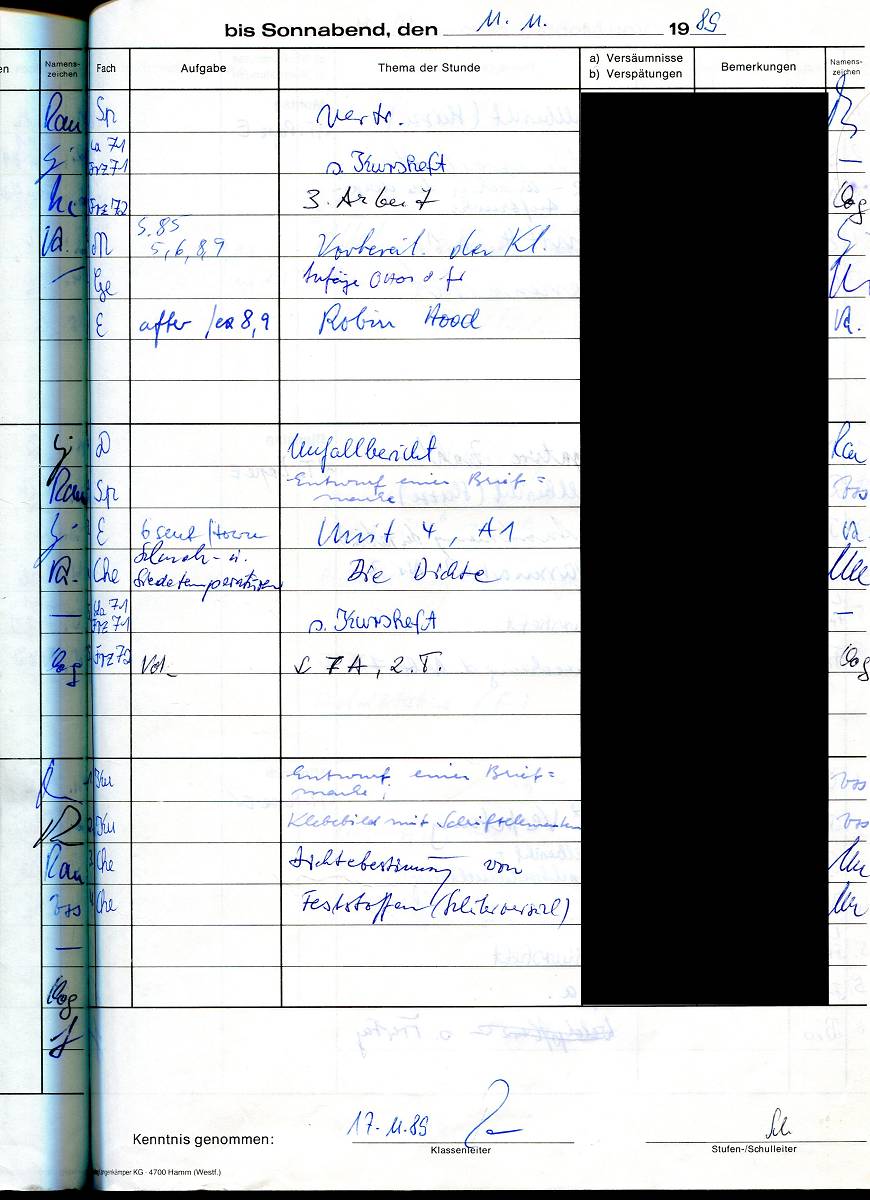 bis Sonnabend, den 11. 11. 1989
en Namens-zeichen Fach Aufgabe Thema der Stunde a) Versäumnisse b) Verspätungen Bemerkungen Namens-zeichen
Rau Sp Vertr.
La 71
Frz 71 s. Kursheft —
Frz 72 3. Arbeit Oog
S. 85
M 5,6,8,9 Vorbereit. der Kl.
— Ge
E after / ex 8,9 Robin Hood
D Unfallbericht Rau
Rau Sp Entwurf einer Brief=
marke
E Unit 4, A1
Che Schmelz- u.
Siedetemperaturen Die Dichte
— La 71
Frz 71 s. Kursheft —
Oog Frz 72 Vok. L 7A, 2. T. Oog
Ku Entwurf einer Brief=
marke;
Ku Klebebild mit Schriftelementen
Rau Che Dichtebestimmung von
Che Feststoffen (Schülerversuch)
—
Oog
Kenntnis genommen: 17.11.89
Klassenleiter Stufen-/Schulleiter
KG · 4700 Hamm (Westf.)